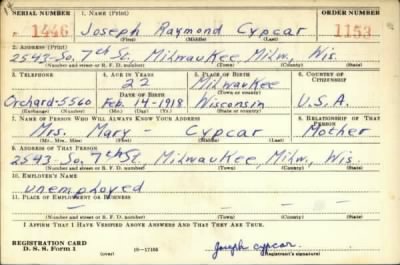 SERIAL NUMBER 1. NAME (Print) ORDER NUMBER
1446 Joseph Raymond Cypcar 1153
(First) (Middle) (Last)
2. ADDRESS (Print)
2543-So, 7th St, Milwaukee, Milw, Wis.
(Number and street or R. F. D. number) (Town) (County) (State)
3. TELEPHONE 4. AGE IN YEARS 5. PLACE OF BIRTH 6. COUNTRY OF CITIZENSHIP
22 Milwaukee
DATE OF BIRTH (Town or county)
Orchard-5560 Feb. 14-1918 Wisconsin U.S.A.
(Exchange) (Number) (Mo.) (Day) (Yr.) (State or country)
7. NAME OF PERSON WHO WILL ALWAYS KNOW YOUR ADDRESS 8. RELATIONSHIP OF THAT PERSON
Mrs. Mary - Cypcar Mother
(Mr., Mrs., Miss) (First) (Middle) (Last)
9. ADDRESS OF THAT PERSON
2543-So, 7th St. Milwaukee, Milw, Wis.
(Number and street or R. F. D. number) (Town) (County) (State)
10. EMPLOYER'S NAME
unemployed
11. PLACE OF EMPLOYMENT OR BUSINESS
— — — —
(Number and street or R. F. D. number) (Town) (County) (State)
I AFFIRM THAT I HAVE VERIFIED ABOVE ANSWERS AND THAT THEY ARE TRUE.
REGISTRATION CARD
D. S. S. Form 1 16-17105 Joseph Cypcar
(Registrant's signature)